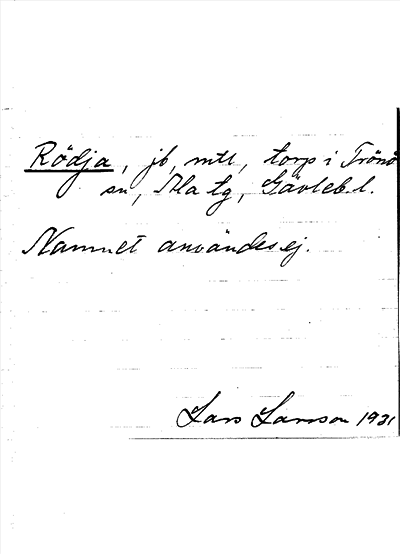 Rödja, jb, mtl, torp i Trönö
sn, Ala tg, Gävleb. l.
Namnet användes ej.
Lars Larsson 1931